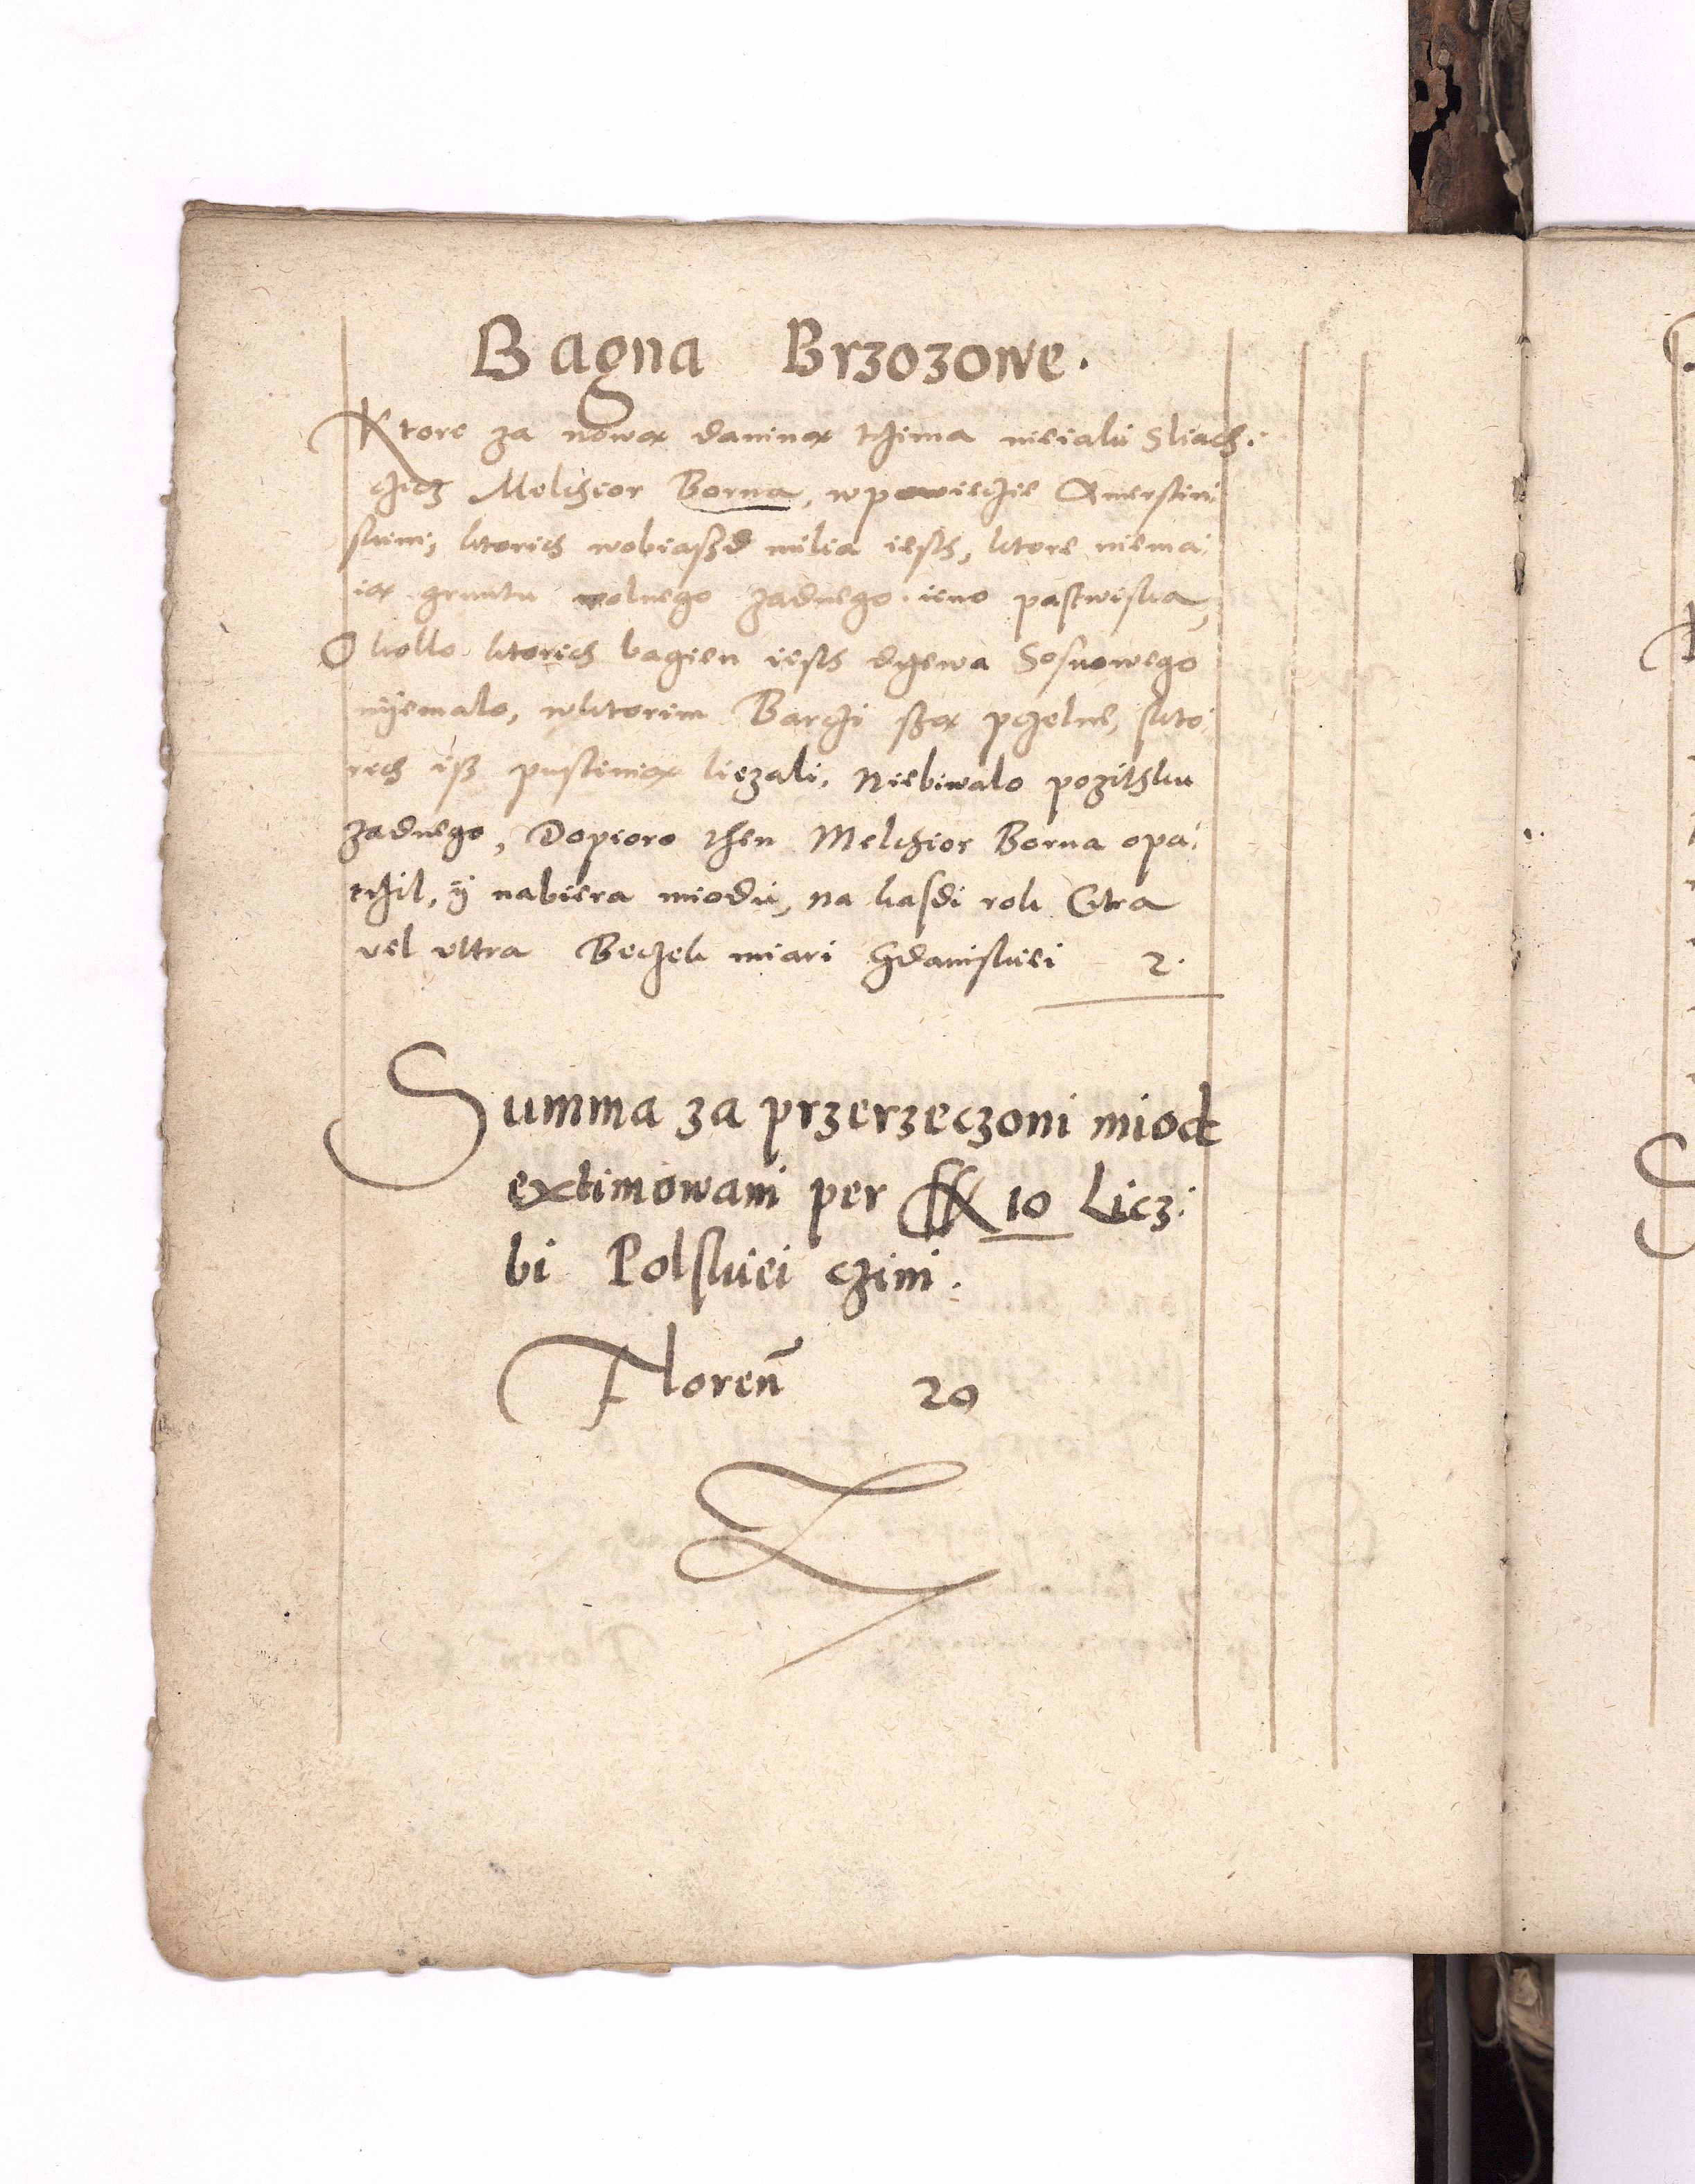 Bagna Brzozowe.
Ktore za nową daninąą trzima nieiaki Sliach:
czicz Melchior Borna, wpowieczie
skim, ktorich wobiaszd milia iesth, ktore niema:
ią gruntu rolnego zadnego ieno pastwiska,
Okollo ktorich bagien iesth drzewa Sosnowego
niiemalo, wktorim Barczi szą pczelne, skto:
rich isz pustinią liezali, Niebiwalo pozithku
zadnego, Dopioro then Melchior Borna opa:
trzil, ij nabiera miodu, na kasdi rok Citra
vel vltra Beczek miari Gdanskiei 2.
Summa za przerzeczoni miod
extimowani per 10 Licz:
bi Polskiei czini.
Floren̄ 20